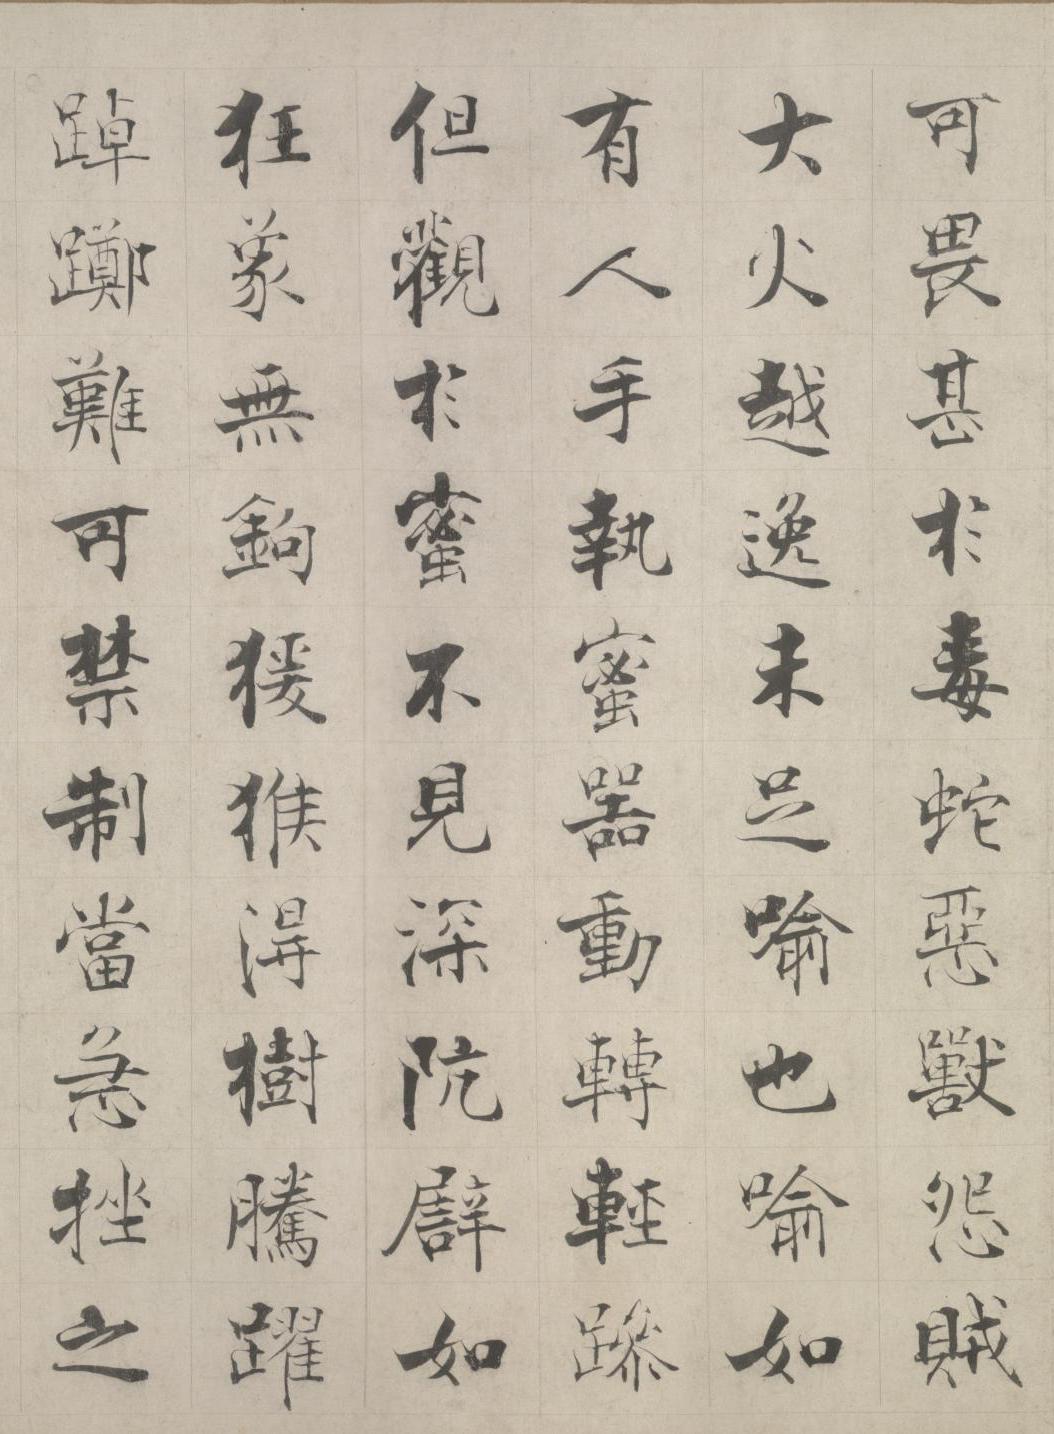 可畏甚於毒蛇惡獸怨賊
大火越逸未足喻也喻如
有人手執蜜器動轉輕躁
但觀於蜜不見深阬譬如
狂象無鉤猨猴得樹騰躍
踔躑難可禁制當急挫之